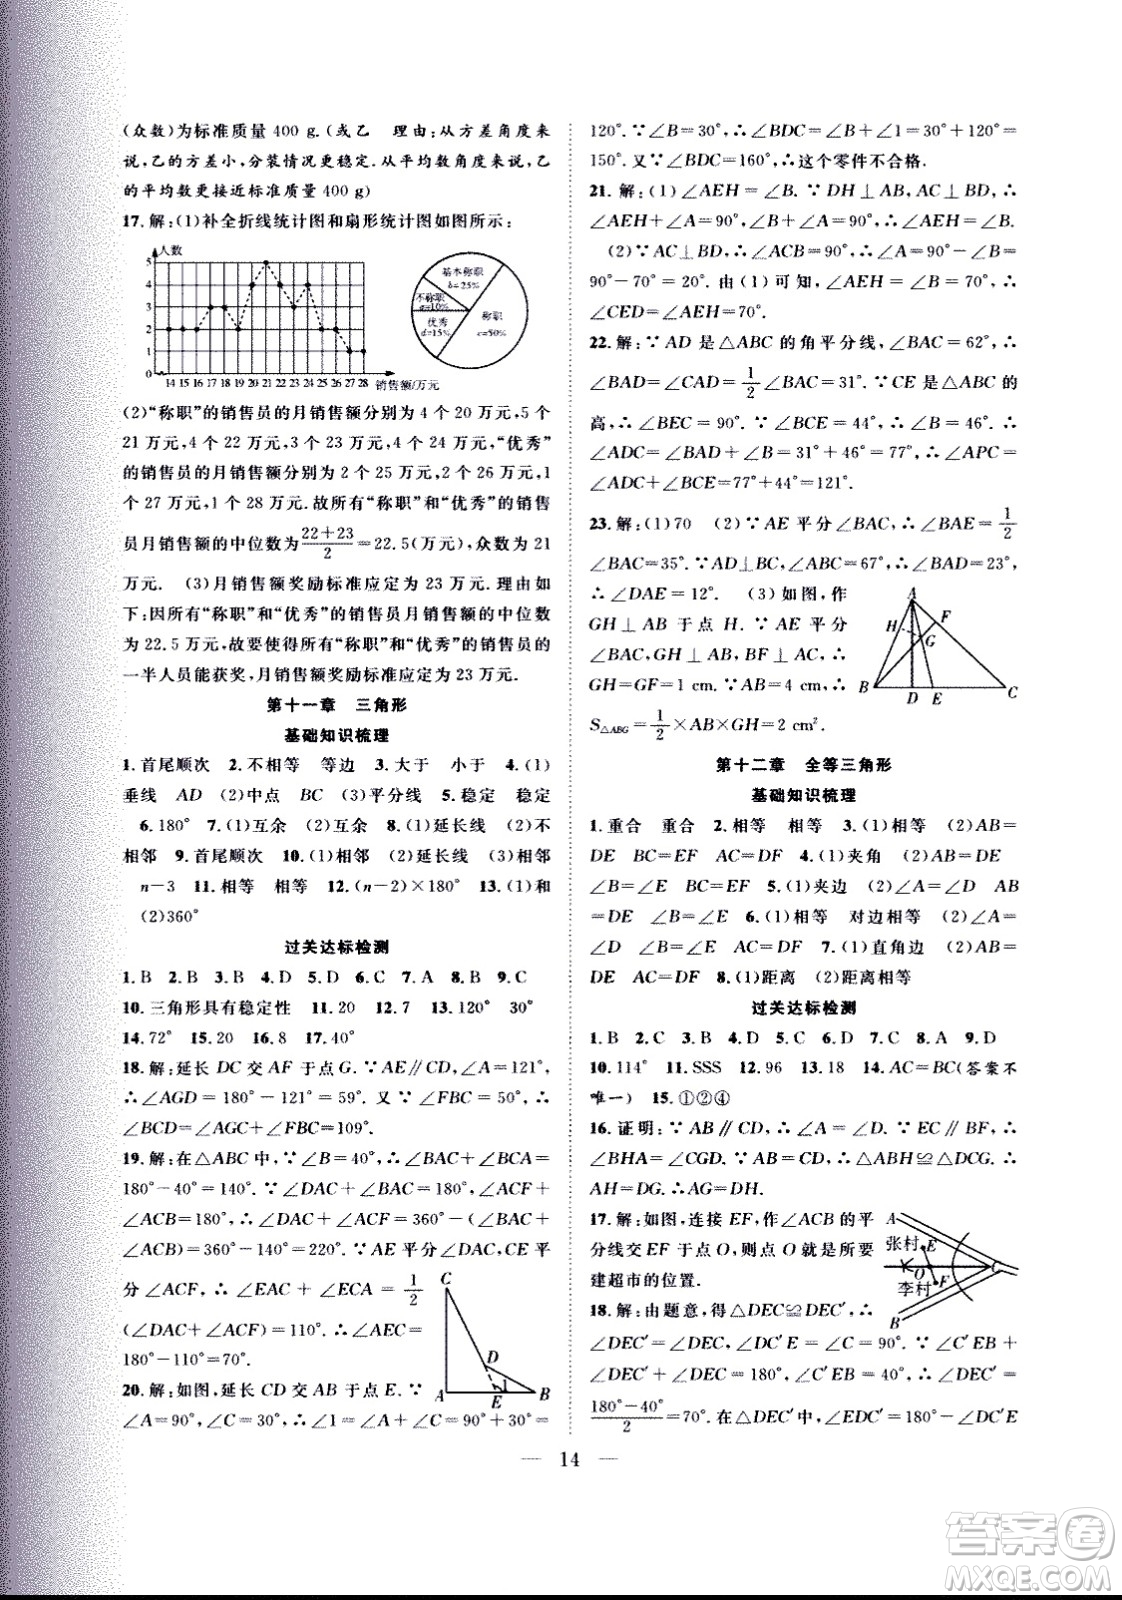 (众数)为标准质量 400 g.(或乙　理由:从方差角度来
说,乙的方差小,分装情况更稳定.从平均数角度来说,乙
的平均数更接近标准质量 400 g)
17.解:(1)补全折线统计图和扇形统计图如图所示:
人数
5
4
3
2
1
0
14 15 16 17 18 19 20 21 22 23 24 25 26 27 28 销售额/万元
基本称职
b=25%
不称职
a=10%
优秀
d=15%
称职
c=50%
(2)“称职”的销售员的月销售额分别为 4 个 20 万元,5 个
21 万元,4 个 22 万元,3 个 23 万元,4 个 24 万元,“优秀”
的销售员的月销售额分别为 2 个 25 万元,2 个 26 万元,1
个 27 万元,1 个 28 万元.故所有“称职”和“优秀”的销售
员月销售额的中位数为 (22+23)/2=22.5(万元),众数为 21
万元.　(3)月销售额奖励标准应定为 23 万元.理由如
下:因所有“称职”和“优秀”的销售员月销售额的中位数
为 22.5 万元,故要使得所有“称职”和“优秀”的销售员的
一半人员能获奖,月销售额奖励标准应定为 23 万元.
第十一章　三角形
基础知识梳理
1.首尾顺次　2.不相等　等边　3.大于　小于　4.(1)
垂线　AD　(2)中点　BC　(3)平分线　5.稳定　稳定
6.180°　7.(1)互余　(2)互余　8.(1)延长线　(2)不
相邻　9.首尾顺次　10.(1)相邻　(2)延长线　(3)相邻
n-3　11.相等　相等　12.(n-2)×180°　13.(1)和
(2)360°
过关达标检测
1.B　2.B　3.B　4.D　5.D　6.C　7.A　8.B　9.C
10.三角形具有稳定性　11.20　12.7　13.120°　30°
14.72°　15.20　16.8　17.40°
18.解:延长 DC 交 AF 于点 G.∵AE∥CD,∠A=121°,
∴∠AGD=180°-121°=59°.又∵∠FBC=50°,∴
∠BCD=∠AGC+∠FBC=109°.
19.解:在△ABC 中,∵∠B=40°,∴∠BAC+∠BCA=
180°-40°=140°.∵∠DAC+∠BAC=180°,∠FCA+
∠ACB=180°,∴∠DAC+∠FCA=360°-(∠BAC+
∠ACB)=360°-140°=220°.∵AE 平分∠DAC,CE 平
分∠ACF,∴∠EAC+∠ECA=1/2
(∠DAC+∠FCA)=110°.∴∠AEC=
180°-110°=70°.
20.解:如图,延长 CD 交 AB 于点 E.∵
C
D
1
A
E
B
∠A=90°,∠C=30°,∴∠1=∠A+∠C=90°+30°=
120°.∵∠B=30°,∴∠BDC=∠B+∠1=30°+120°=
150°.又∵∠BDC=160°,∴这个零件不合格.
21.解:(1)∠AEH=∠B.∵DH⊥AB,AC⊥BD,∴
∠AEH+∠A=90°,∠B+∠A=90°,∴∠AEH=∠B.
(2)∵AC⊥BD,∴∠ACB=90°,∴∠A=90°-∠B=
90°-70°=20°.由(1)可知,∠AEH=∠B=70°,∴
∠CED=∠AEH=70°.
22.解:∵AD 是△ABC 的角平分线,∠BAC=62°,∴
∠BAD=∠CAD=1/2∠BAC=31°.∵CE 是△ABC 的
高,∴∠BEC=90°.∵∠BCE=44°,∴∠B=46°.∴
∠ADC=∠BAD+∠B=31°+46°=77°.∴∠APC=
∠ADC+∠BCE=77°+44°=121°.
23.解:(1)70　(2)∵AE 平分∠BAC,∴∠BAE=1/2
∠BAC=35°.∵AD⊥BC,∠ABC=67°,∴∠BAD=23°,
∴∠DAE=12°.　(3)如图,作
GH⊥AB 于点 H.∵AE 平分
∠BAC,GH⊥AB,BF⊥AC,∴
GH=GF=1 cm.∵AB=4 cm,∴
S△ABG=1/2×AB×GH=2 cm².
A
F
H
G
B
D E
C
第十二章　全等三角形
基础知识梳理
1.重合　重合　2.相等　相等　3.(1)相等　(2)AB=
DE　BC=EF　AC=DF　4.(1)夹角　(2)AB=DE
∠B=∠E　BC=EF　5.(1)夹边　(2)∠A=∠D　AB
=DE　∠B=∠E　6.(1)相等　对边相等　(2)∠A=
∠D　∠B=∠E　AC=DF　7.(1)直角边　(2)AB=
DE　AC=DF　8.(1)距离　(2)距离相等
过关达标检测
1.B　2.C　3.B　4.D　5.C　6.C　7.B　8.A　9.D
10.114°　11.SSS　12.96　13.18　14.AC=BC(答案不
唯一)　15.①②④
16.证明:∵AB∥CD,∴∠A=∠D.∵EC∥BF,∴
∠BHA=∠CGD.∵AB=CD,∴△ABH≌△DCG,∴
AH=DG.∴AG=DH.
17.解:如图,连接 EF,作∠ACB 的平
分线交 EF 于点 O,则点 O 就是所要
建超市的位置.
A
张村
E
O
C
F
李村
B
18.解:由题意,得△DEC≌△DEC′,∴
∠DEC′=∠DEC,∠DC′E=∠C=90°.∵∠C′EB+
∠DEC′+∠DEC=180°,∠C′EB=40°,∴∠DEC′=
(180°-40°)/2=70°.在△DEC′中,∠EDC′=180°-∠DC′E
14
答案圈
MXQE.COM